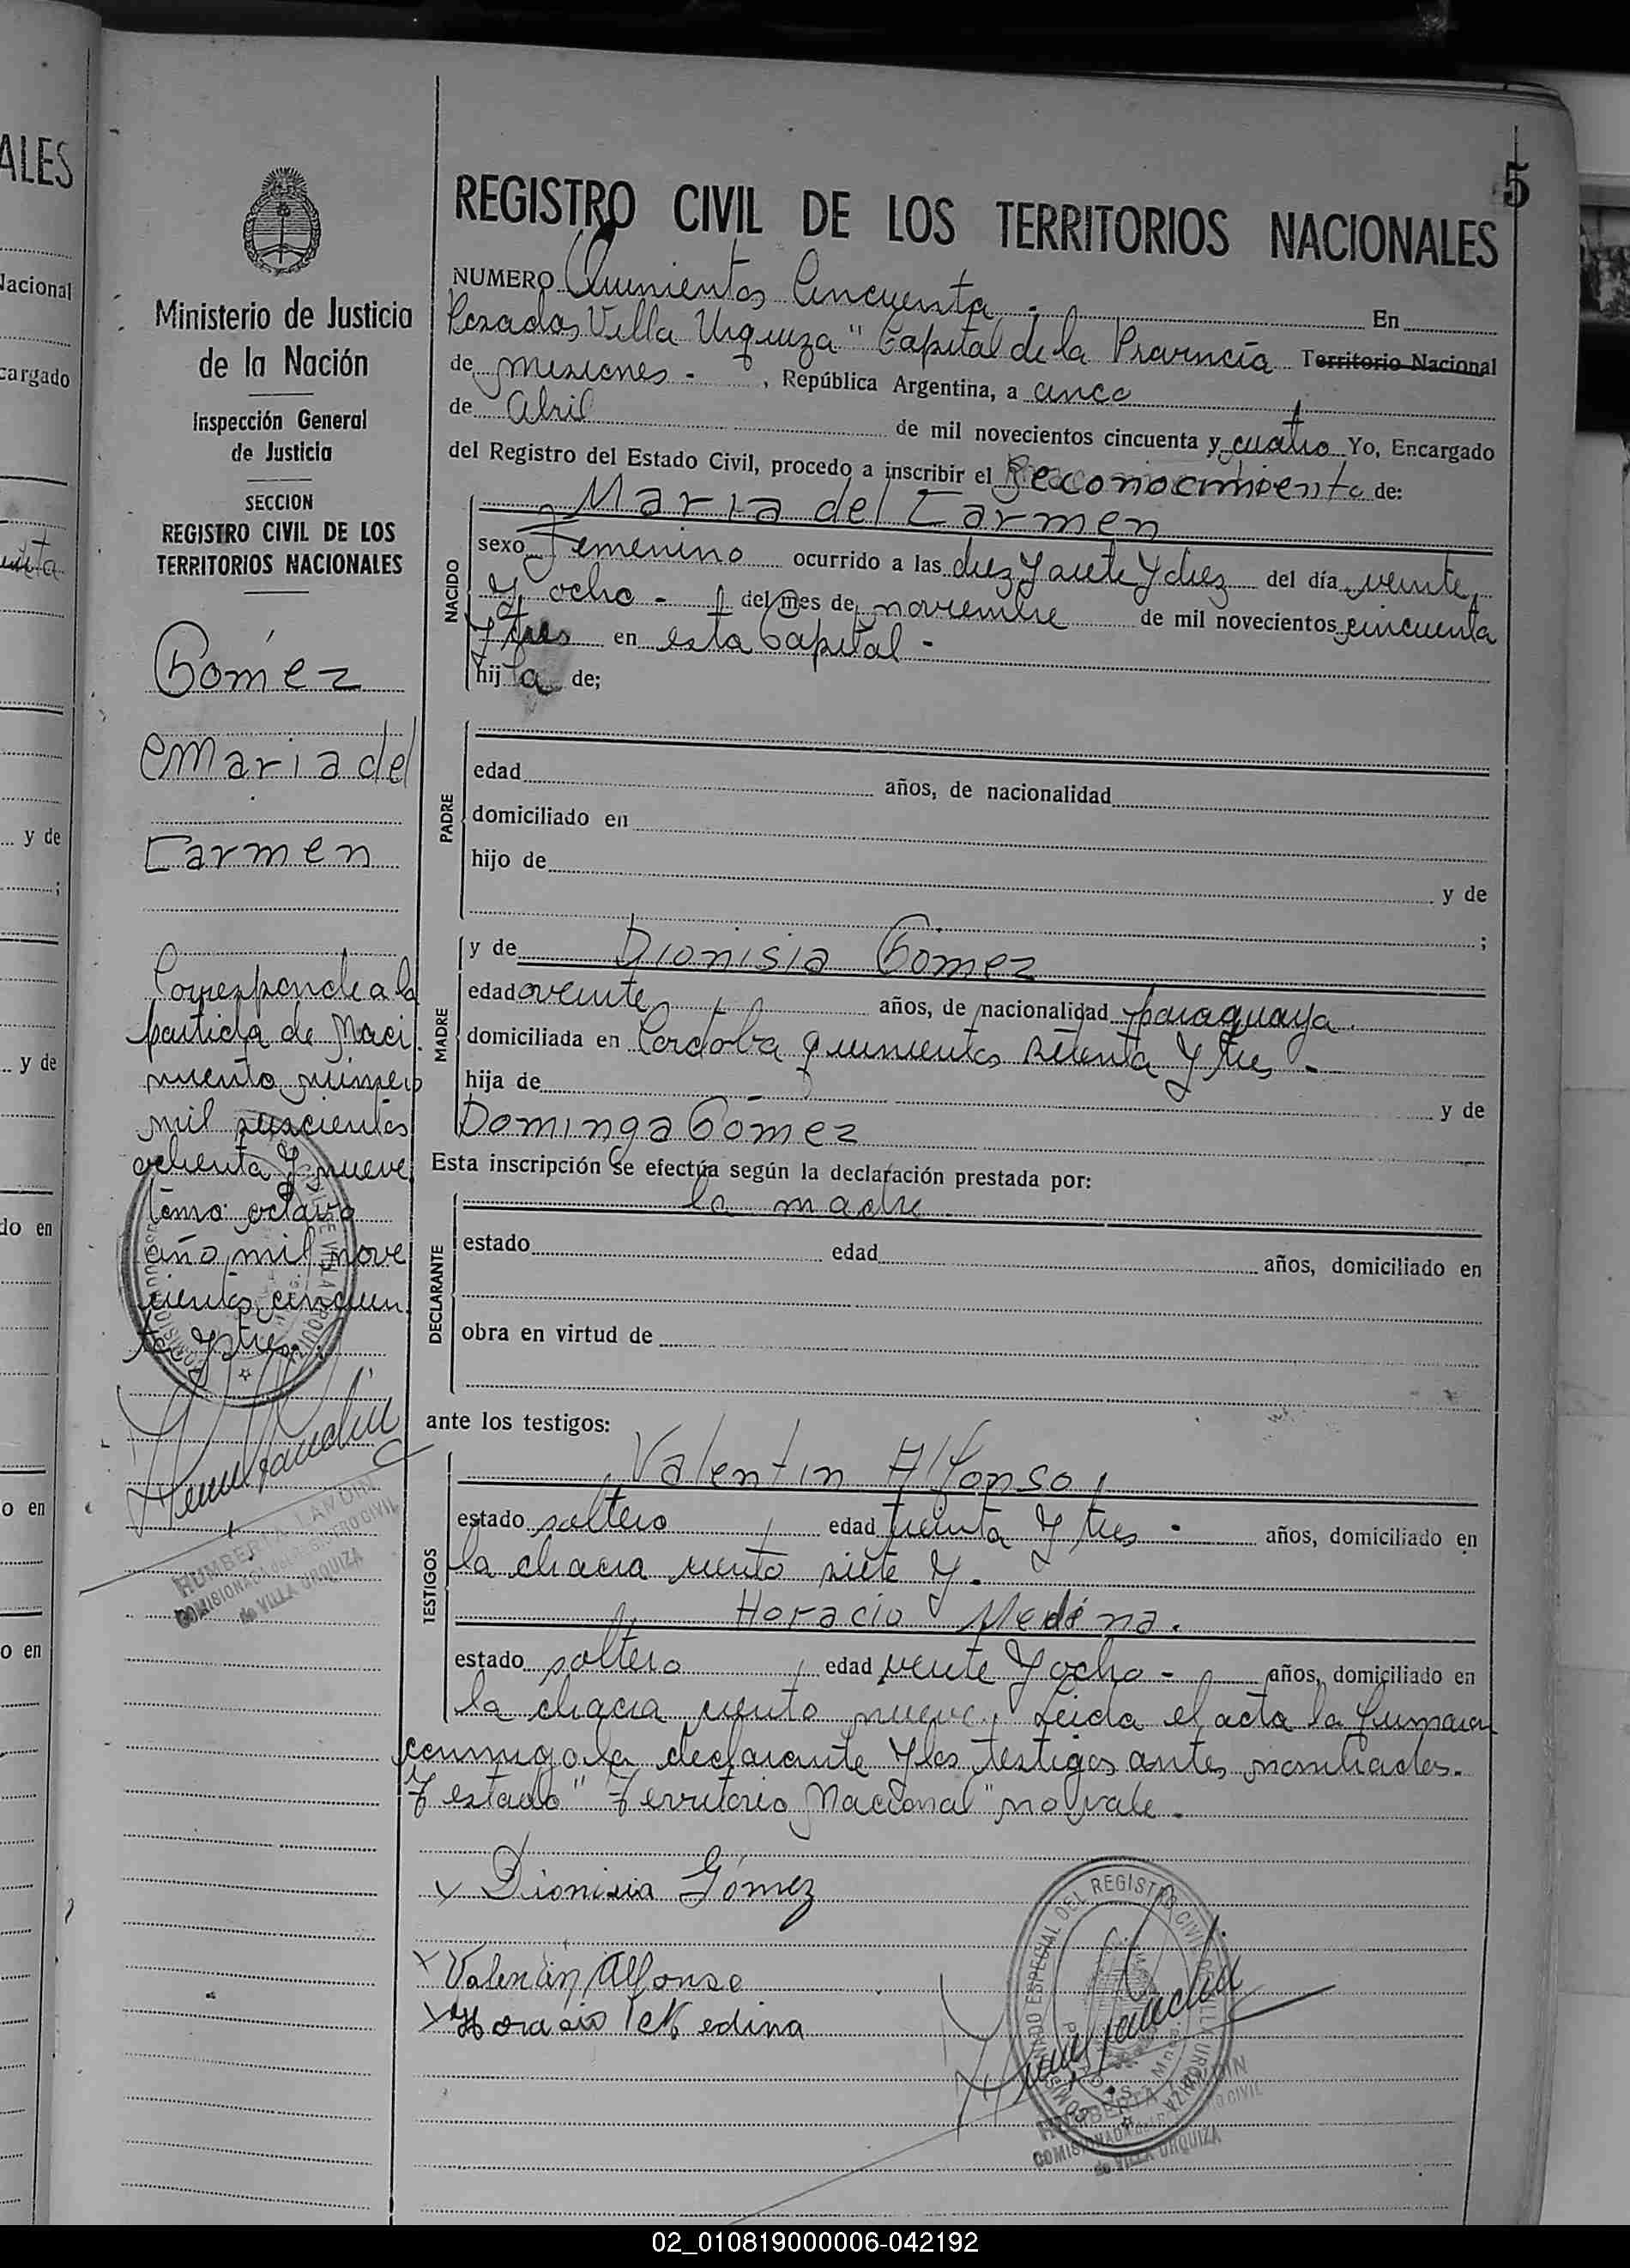 5
REGISTRO CIVIL DE LOS TERRITORIOS NACIONALES
Ministerio de Justicia
de la Nación
Inspección General
de Justicia
SECCION
REGISTRO CIVIL DE LOS
TERRITORIOS NACIONALES
Gómez
Maria del
Carmen
Corresponde a la
partida de Naci
miento número
mil seiscientos
ochenta y nueve
tomo octavo
año mil nove
cientos cincuen
ta y tres.
HUMBERTA LANDIN
COMISIONADA del REGISTRO CIVIL
de VILLA URQUIZA
NUMERO Quinientos Cincuenta.- En
Posadas, Villa Urquiza" Capital de la Provincia Territorio Nacional
de Misiones - , República Argentina, a cinco
de Abril de mil novecientos cincuenta y cuatro Yo, Encargado
del Registro del Estado Civil, procedo a inscribir el Reconocimiento de:
NACIDO
Maria del Carmen
sexo Femenino ocurrido a las diez y siete y diez del día veinte
y ocho - del mes de noviembre de mil novecientos cincuenta
y tres en esta Capital -
hij a de;
PADRE
edad años, de nacionalidad
domiciliado en
hijo de y de
;
MADRE
y de Dionisia Gómez
edad veinte años, de nacionalidad paraguaya.
domiciliada en Cordoba quinientos setenta y tres -
hija de y de
Dominga Gómez
Esta inscripción se efectúa según la declaración prestada por:
DECLARANTE
la madre.
estado edad años, domiciliado en
obra en virtud de
ante los testigos:
TESTIGOS
Valentin Alfonso,
estado soltero, edad treinta y tres - años, domiciliado en
la chacra ciento siete y.
Horacio Medina.
estado soltero, edad veinte y ocho - años, domiciliado en
la chacra ciento nueve. Leida el acta la firmaron
conmigo la declarante y los testigos antes nombrados.
Testado "Territorio Nacional" no vale.
x Dionisia Gómez
x Valentin Alfonso
x Horacio Medina
COMISIONADO ESPECIAL DEL REGISTRO CIVIL VILLA URQUIZA
HUMBERTA LANDIN
COMISIONADA del REGISTRO CIVIL
de VILLA URQUIZA
02_010819000006-042192